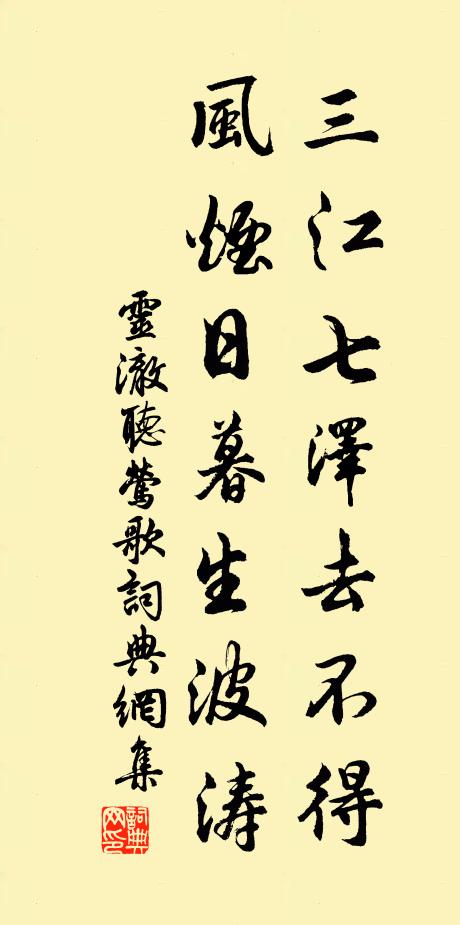 三江七澤去不得
風煙日暮生波濤
靈澈聽鶯歌詞典網集
詞典
网印